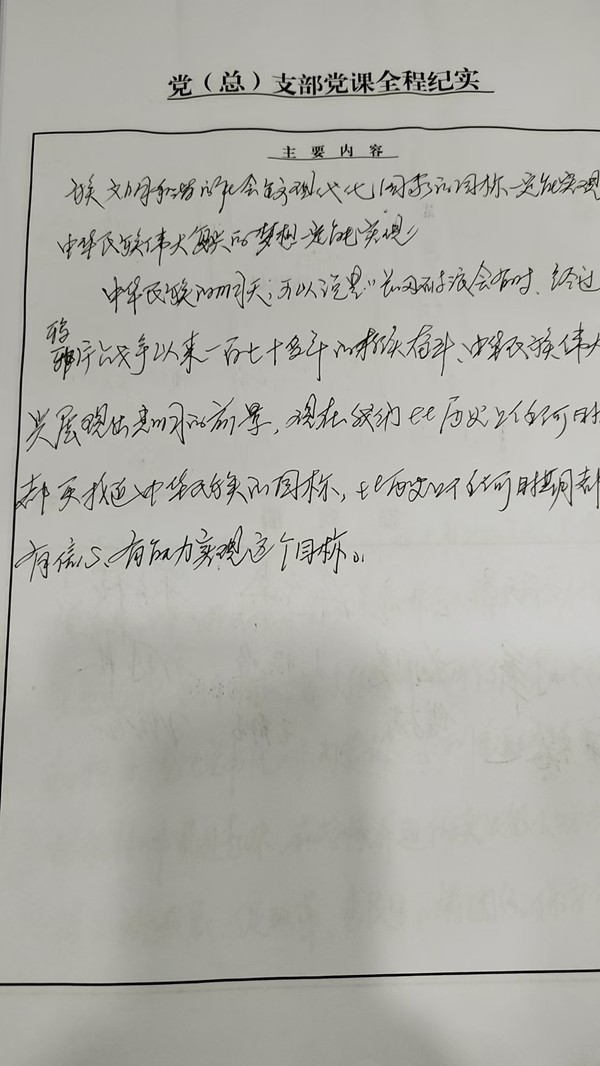 党（总）支部党课全程纪实
主要内容
族文明和谐的社会主义现代化国家的目标一定能实现
中华民族伟大复兴的梦想一定能实现
中华民族的明天，可以说是“长风破浪会有时”经过
鸦片战争以来一百七十多年的持续奋斗、中华民族伟大
兴展现出光明的前景，现在我们比历史上任何时
都更接近中华民族的目标，比历史上任何时期都
有信心、有能力实现这个目标。